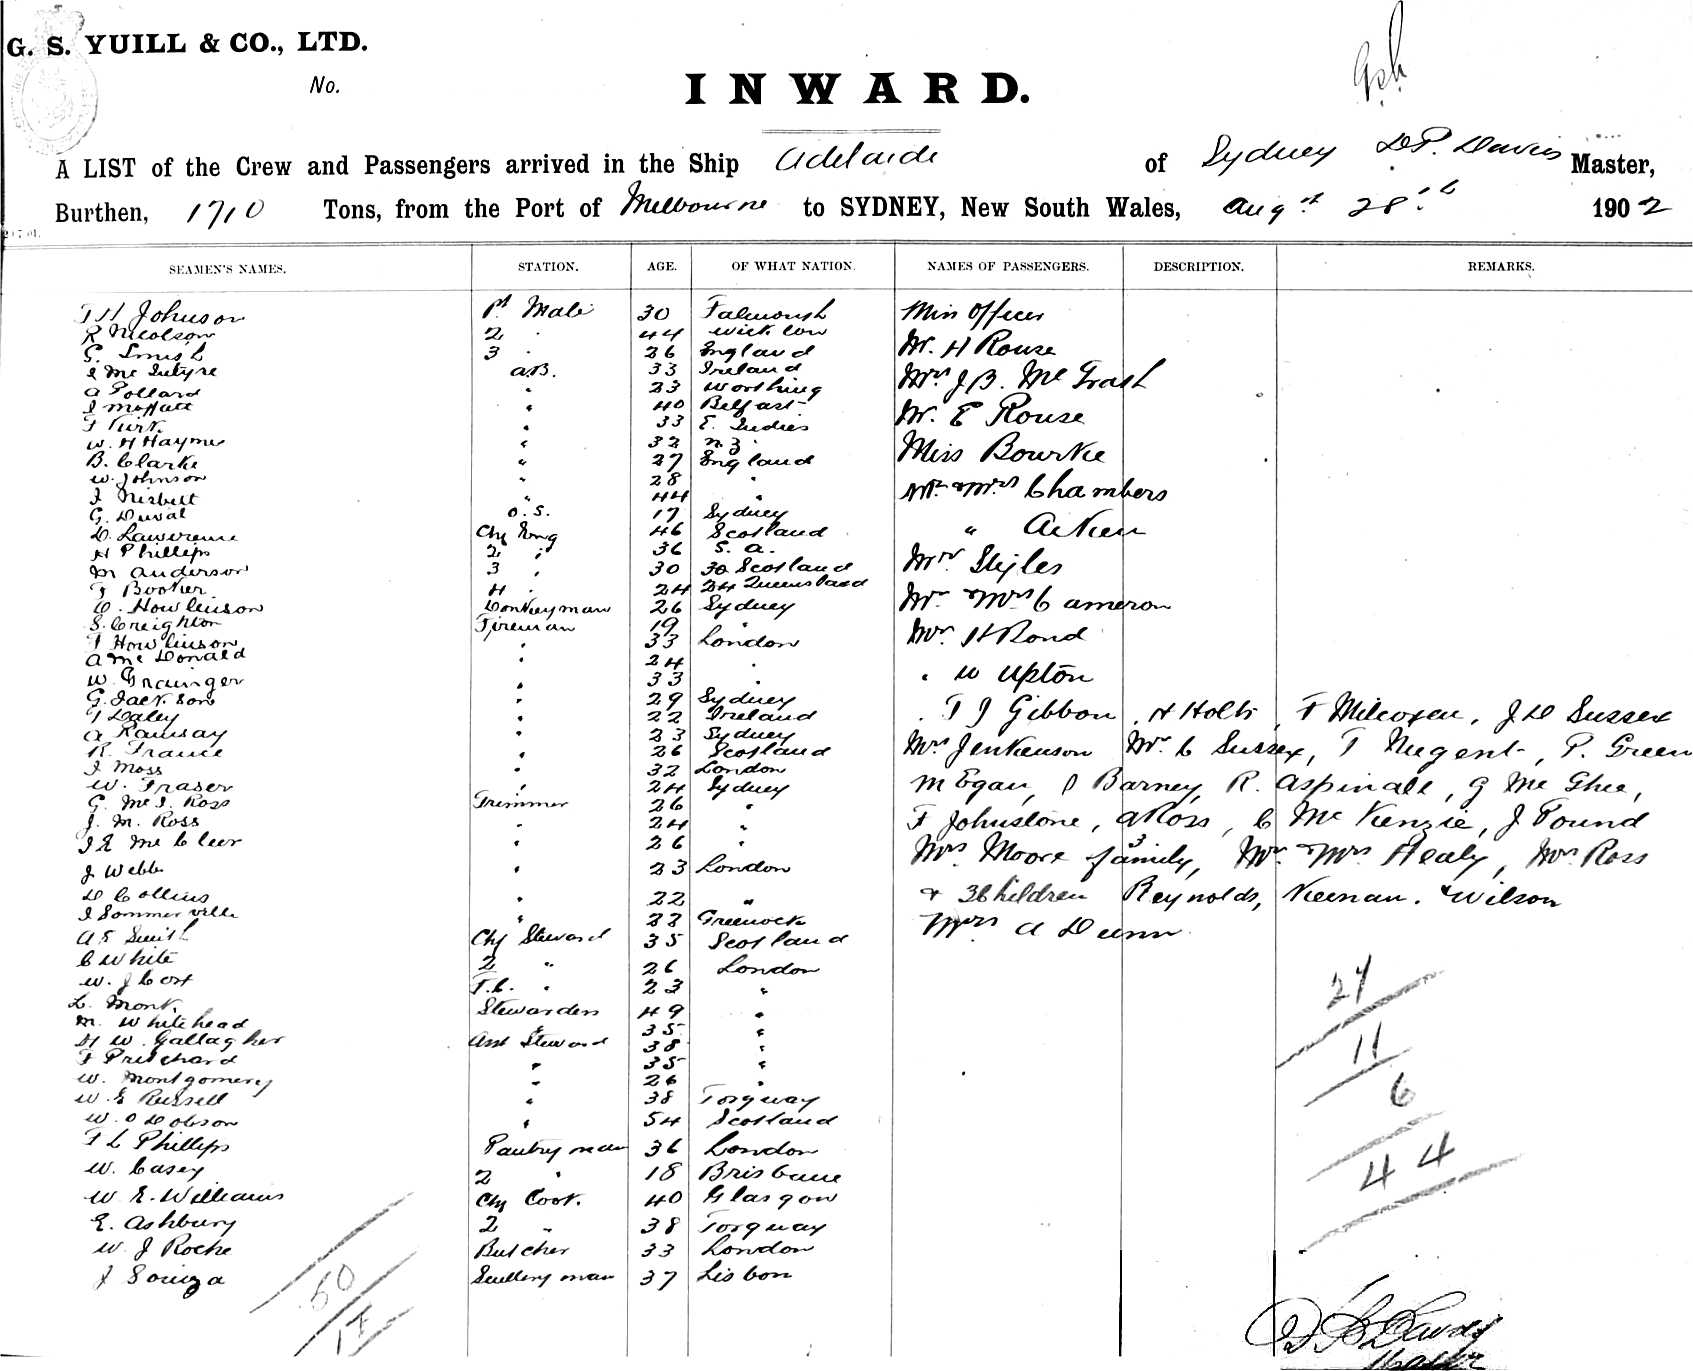 G. S. YUILL & CO., LTD.
No.
INWARD.
A LIST of the Crew and Passengers arrived in the Ship Adelaide of Sydney D.P. Davies Master,
Burthen, 1710 Tons, from the Port of Melbourne to SYDNEY, New South Wales, Augst 28th 1902
SEAMEN'S NAMES. STATION. AGE. OF WHAT NATION. NAMES OF PASSENGERS. DESCRIPTION. REMARKS.
T H Johnson 1st Mate 30 Falmouth Miss Officer
R Nicolson 2 " 44 Wicklow Mr. H Rouse
G. Smith 3 " 26 England
J McIntyre A.B. 33 Ireland Mrs J B. McGrath
A Pollard " 23 Worthing
J Moffatt " 40 Belfast Mr. E Rouse
T Kirk " 33 E. Indies
W. H Hayme " 32 N.Z. Miss Bourke
B. Clarke " 27 England
W. Johnson " 28 " Mr & Mrs Chambers
J Nisbett " 44 "
G. Duval O.S. 17 Sydney " Aitken
D. Lawrence Chf Eng 46 Scotland
H Phillips 2 " 36 S. A. Mrs Stiles
M Anderson 3 " 30 30 Scotland
F Booker 4 " 24 24 Queensland Mr & Mrs Cameron
C. Howlinson Donkeyman 26 Sydney
S. Creighton Fireman 19 " Mr H Bond
T Howlinson " 33 London
A McDonald " 24 " " W Upton
W. Grainger " 33
G. Jackson " 29 Sydney " T J Gibbon, H Holt, F , J D Sussex
T Daley " 22 Ireland
A Ramsay " 23 Sydney Mrs Jenkinson Mr. C Sussex, T Nugent, P. Green
R. France " 26 Scotland
J Moss " 32 London M Egan, J Barney, R. Aspinall, G McGhee,
W. Fraser " 24 Sydney
G. McJ. Ross Trimmer 26 " F Johnstone, A Ross, C McKenzie, J Pound
J. M. Ross " 24 "
J E McCleer " 26 " Mrs Moore & family 3, Mr & Mrs Healy, Mrs Ross
J Webb " 23 London
D Collins " 22 " & 3 Children Reynolds, Keenan & Wilson
J Sommerville " 22 Greenock Mrs A Dunn
A E Smith Chf Steward 35 Scotland
C White 2 " 26 London
W. J Cox F.C. " 23 "
L. Monk Stewardess 49 "
M. Whitehead " 35 "
H W. Gallagher Asst Steward 38 "
F Pritchard " 35 "
W. Montgomery " 26 "
W. E Russell " 38 Torquay
W. O Dobson " 54 Scotland
F L Phillips Pantryman 36 London
W. Casey 2 " 18 Brisbane
W. E. Williams Chf Cook 40 Glasgow
E. Ashbury 2 " 38 Torquay
W. J Roche Butcher 33 London
J Souza Scullery man 37 Lisbon
27
11
6
44
50
17
Master